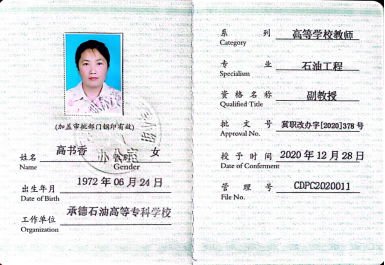 (加盖审批部门钢印有效)
姓名 高书香 性别 女
Name Gender
出生年月 1972 年 06 月 24 日
Date of Birth
工作单位 承德石油高等专科学校
Organization
系 列 高等学校教师
Category
专 业 石油工程
Specialism
资格名称 副教授
Qualified Title
批 文 号 冀职改办字[2020]378 号
Approval No.
授予时间 2020 年 12 月 28 日
Date of Conferment
管 理 号 CDPC2020011
File No.